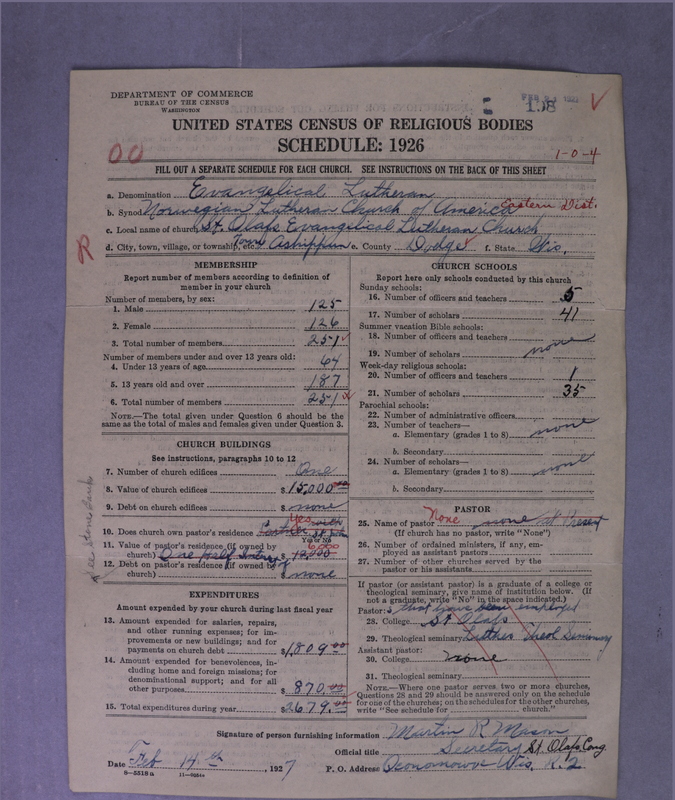 DEPARTMENT OF COMMERCE
BUREAU OF THE CENSUS
WASHINGTON
108
UNITED STATES CENSUS OF RELIGIOUS BODIES
SCHEDULE: 1926
00
1-0-4
FILL OUT A SEPARATE SCHEDULE FOR EACH CHURCH. SEE INSTRUCTIONS ON THE BACK OF THIS SHEET
a. Denomination Evangelical Lutheran
b. Synod Norwegian Lutheran Church of America Eastern Dist.
c. Local name of church St. Olafs Evangelical Lutheran Church
d. City, town, village, or township, etc. Town Ashippun e. County Dodge f. State Wis.
R
MEMBERSHIP
Report number of members according to definition of member in your church
Number of members, by sex:
1. Male 125
2. Female 126
3. Total number of members 251
Number of members under and over 13 years old:
4. Under 13 years of age 64
5. 13 years old and over 187
6. Total number of members 251
NOTE.—The total given under Question 6 should be the same as the total of males and females given under Question 3.
CHURCH BUILDINGS
See instructions, paragraphs 10 to 12
7. Number of church edifices One
8. Value of church edifices $15,000.00
9. Debt on church edifices $ none
10. Does church own pastor's residence Yes
Yes or No
11. Value of pastor's residence (if owned by church) One half $ 12,000 6,000
12. Debt on pastor's residence (if owned by church) $ none
EXPENDITURES
Amount expended by your church during last fiscal year
13. Amount expended for salaries, repairs, and other running expenses; for improvements or new buildings; and for payments on church debt $1,809.00
14. Amount expended for benevolences, including home and foreign missions; for denominational support; and for all other purposes $ 870.00
15. Total expenditures during year $2679.00
CHURCH SCHOOLS
Report here only schools conducted by this church
Sunday schools:
16. Number of officers and teachers 5
17. Number of scholars 41
Summer vacation Bible schools:
18. Number of officers and teachers
19. Number of scholars none
Week-day religious schools:
20. Number of officers and teachers 1
21. Number of scholars 35
Parochial schools:
22. Number of administrative officers
23. Number of teachers—
a. Elementary (grades 1 to 8) none
b. Secondary
24. Number of scholars—
a. Elementary (grades 1 to 8) none
b. Secondary
PASTOR
25. Name of pastor None none at Present
(If church has no pastor, write "None")
26. Number of ordained ministers, if any, employed as assistant pastors
27. Number of other churches served by the pastor or his assistants
If pastor (or assistant pastor) is a graduate of a college or theological seminary, give name of institution below. (If not a graduate, write "No" in the space indicated.)
Pastor: s that have been employed
28. College St Olafs
29. Theological seminary Luther Theol Seminary
Assistant pastor:
30. College none
31. Theological seminary
NOTE.—Where one pastor serves two or more churches, Questions 28 and 29 should be answered only on the schedule for one of the churches; on the schedules for the other churches, write "See schedule for church."
Signature of person furnishing information Martin R Mason
Official title Secretary St. Olafs Cong.
Date Feb 14th, 1927
P. O. Address Oconomowoc Wis. R.2
8-5518a 11-9054a